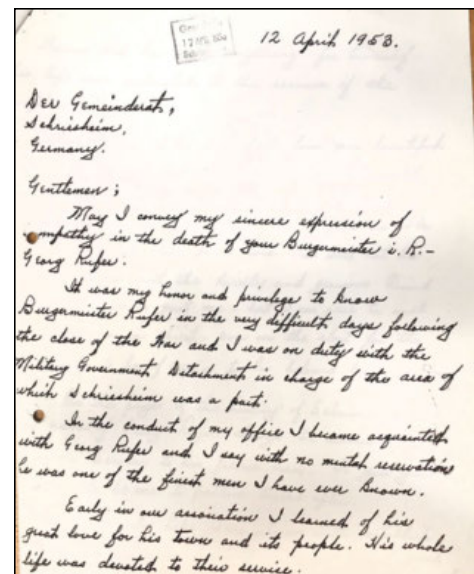 12 April 1953.
Der Gemeinderat,
Schriesheim,
Germany.
Gentlemen;
May I convey my sincere expression of
sympathy in the death of your Burgermeister i. R.-
Georg Rufer.
It was my honor and privilege to know
Burgermeister Rufer in the very difficult days following
the close of the War and I was on duty with the
Military Government Detachment in charge of the area of
which Schriesheim was a part.
In the conduct of my office I became acquainted
with Georg Rufer and I say with no mental reservation
he was one of the finest men I have ever known.
Early in our association I learned of his
great love for his town and its people. His whole
life was devoted to their service.